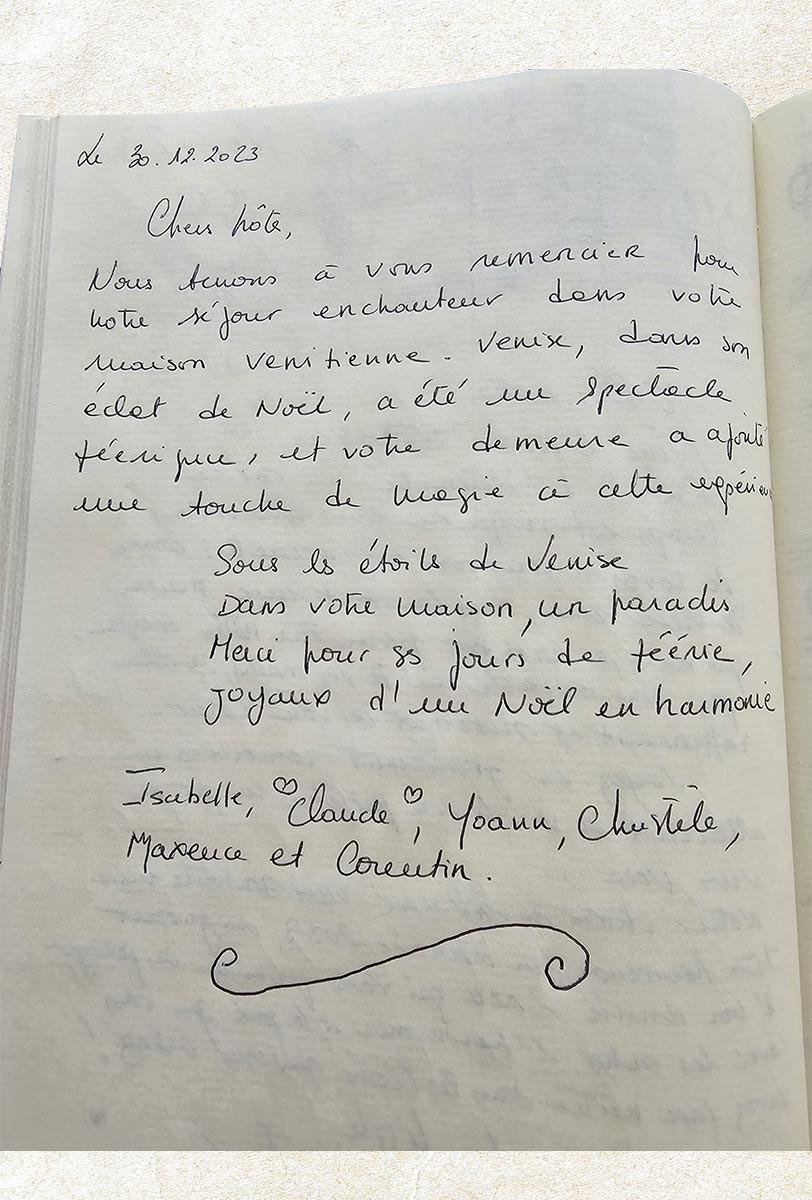 Le 30.12.2023
Chers hôte,
Nous tenons à vous remercier pour
notre séjour enchanteur dans votre
maison venitienne. Venise, dans son
éclat de Noël, a été un spectacle
féerique, et votre demeure a ajouté
une touche de magie à cette expérience
Sous les étoiles de Venise
Dans votre maison, un paradis
Merci pour ses jours de féérie,
Joyaux d'un Noël en harmonie
Isabelle, ♡Claude♡, Yoann, Christèle,
Maxence et Corentin.